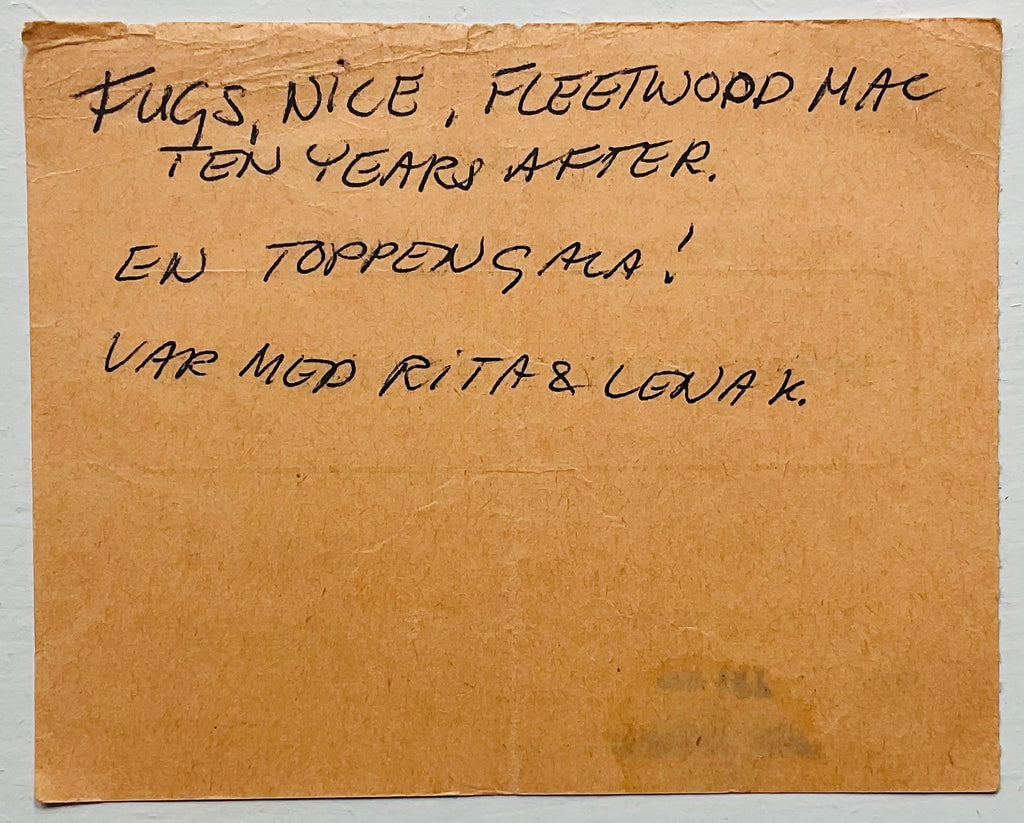 FUGS, NICE, FLEETWOOD MAC
TEN YEARS AFTER.
EN TOPPENGALA!
VAR MED RITA & LENA K.